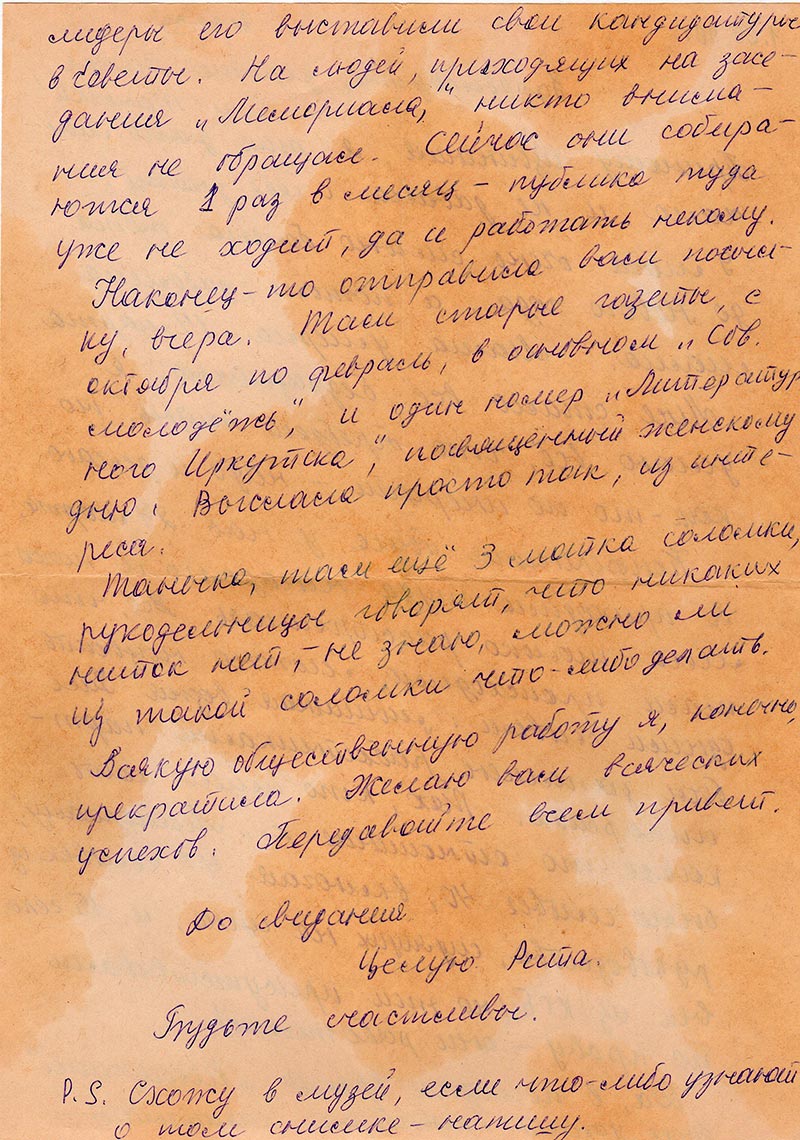 лидеры его выставили свои кандидатуры
в Советы. На людей, приходящих на засе-
дания „Мемориала," никто внима-
ния не обращал. Сейчас они собира-
ются 1 раз в месяц - публика туда
уже не ходит, да и работать некому.
Наконец-то отправила вам посыл-
ку, вчера. Там старые газеты, с
октября по февраль, в основном „Сов.
молодёжь", и один номер „Литератур
ного Иркутска", посвященный женскому
дню. Выслала просто так, из инте-
реса.
Танечка, там ещё 3 мотка соломки,
рукодельницы говорят, что никаких
ниток нет, - не знаю, можно ли
из такой соломки что-либо делать.
Всякую общественную работу я, конечно,
прекратила. Желаю вам всяческих
успехов. Передавайте всем привет.
До свидания
Целую Рита.
Будьте счастливы.
P.S. Схожу в музей, если что-либо узнаю
о том снимке - напишу.